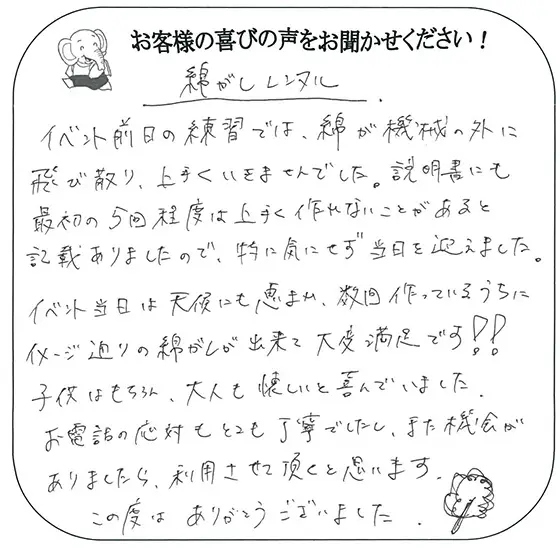 お客様の喜びの声をお聞かせください！
綿がし レンタル
イベント前日の練習では、綿が機械の外に
飛び散り、上手くいきませんでした。説明書にも
最初の5回程度は上手く作れないことがあると
記載ありましたので、特に気にせず当日を迎えました。
イベント当日は天候にも恵まれ、数回作っているうちに
イメージ通りの綿がしが出来て大変満足です!!
子供はもちろん、大人も懐しいと喜んでいました.
お電話の応対もとても丁寧でしたし、また機会が
ありましたら、利用させて頂くと思います.
この度は ありがとうございました.